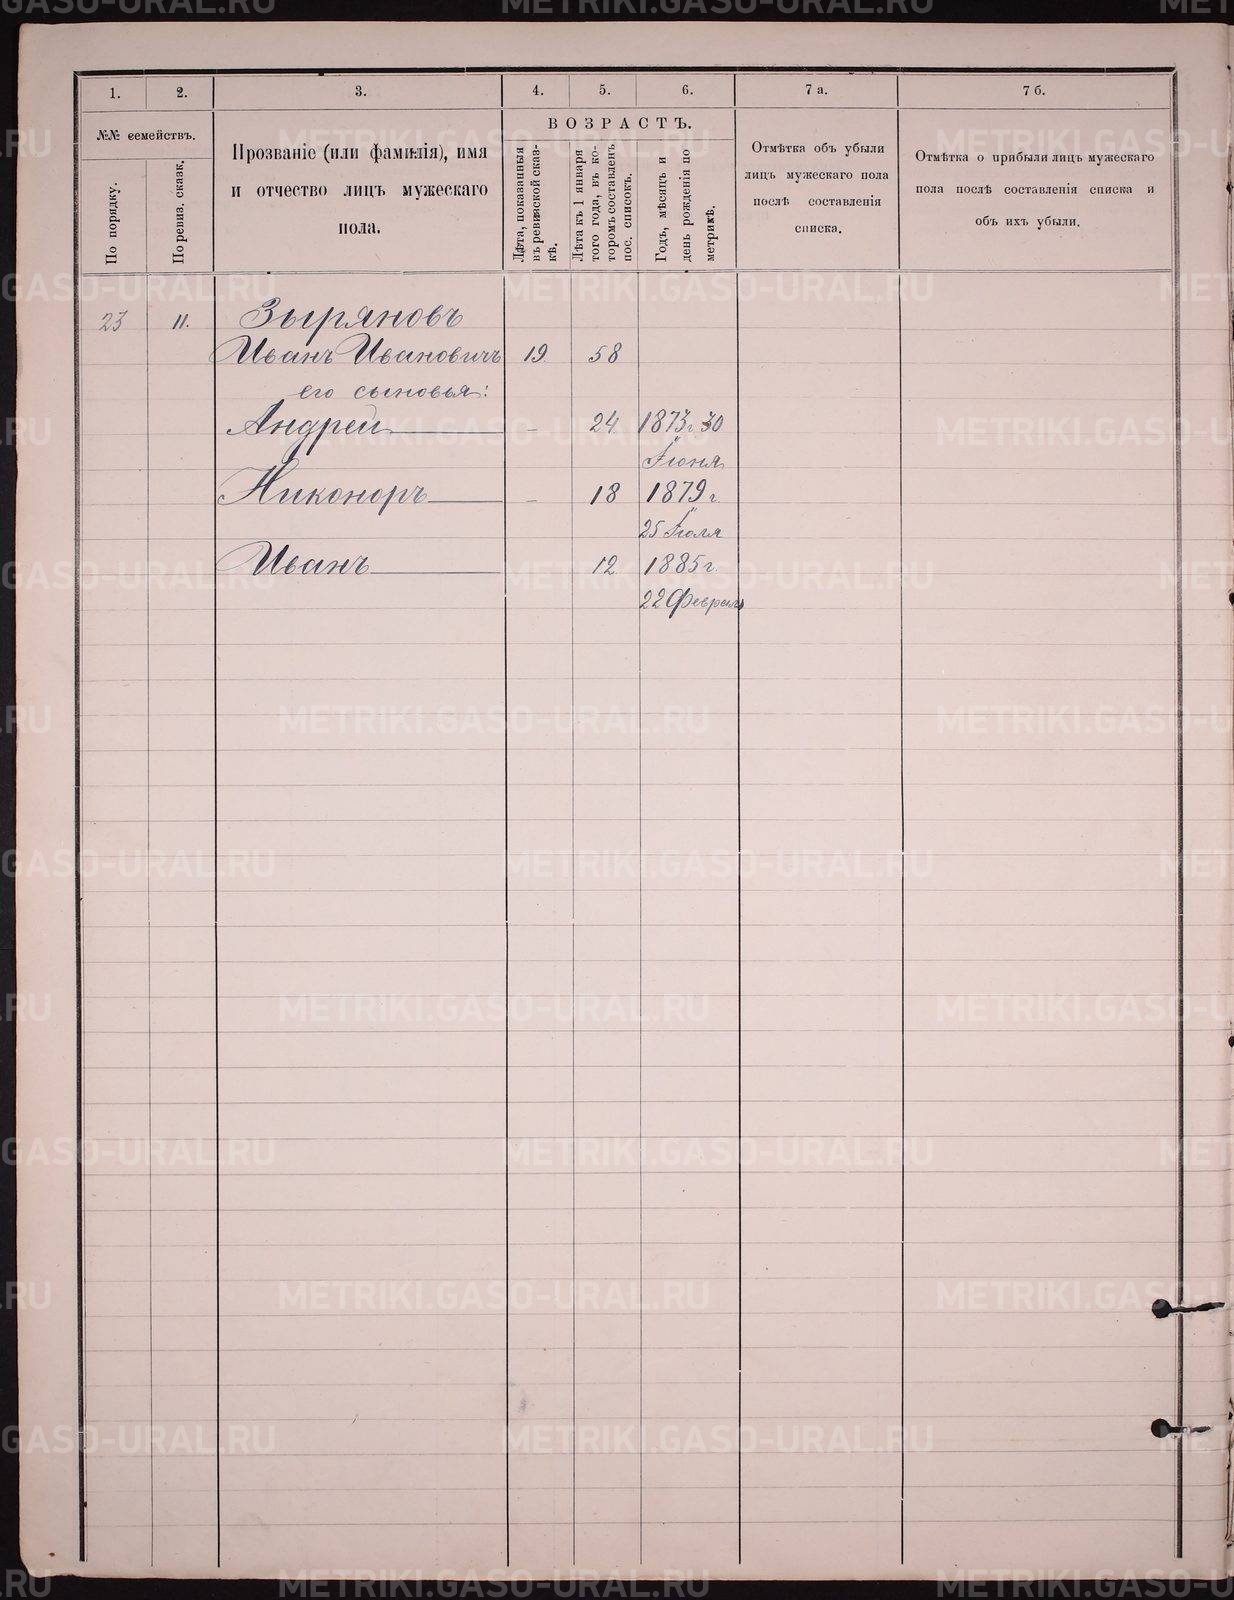 1.
2.
3.
4.
5.
6.
7 а.
7 б.
№№ семействъ.
По порядку.
По ревиз. сказк.
Прозваніе (или фамилія), имя
и отчество лицъ мужескаго
пола.
ВОЗРАСТЪ.
Лѣта, показанныя
въ ревизской сказ-
кѣ.
Лѣта къ 1 января
того года, въ ко-
торомъ составленъ
пос. списокъ.
Годъ, мѣсяцъ и
день рожденія по
метрикѣ.
Отмѣтка объ убыли
лицъ мужескаго пола
послѣ составленія
списка.
Отмѣтка о прибыли лицъ мужескаго
пола послѣ составленія списка и
объ ихъ убыли.
23 11. Зыряновъ
Иванъ Ивановичъ 19 58
его сыновья:
Андрей — 24 1873 г 30
Іюня
Никоноръ — 18 1879 г.
25 Іюля
Иванъ 12 1885 г.
22 Февраля
METRIKI.GASO-URAL.RU